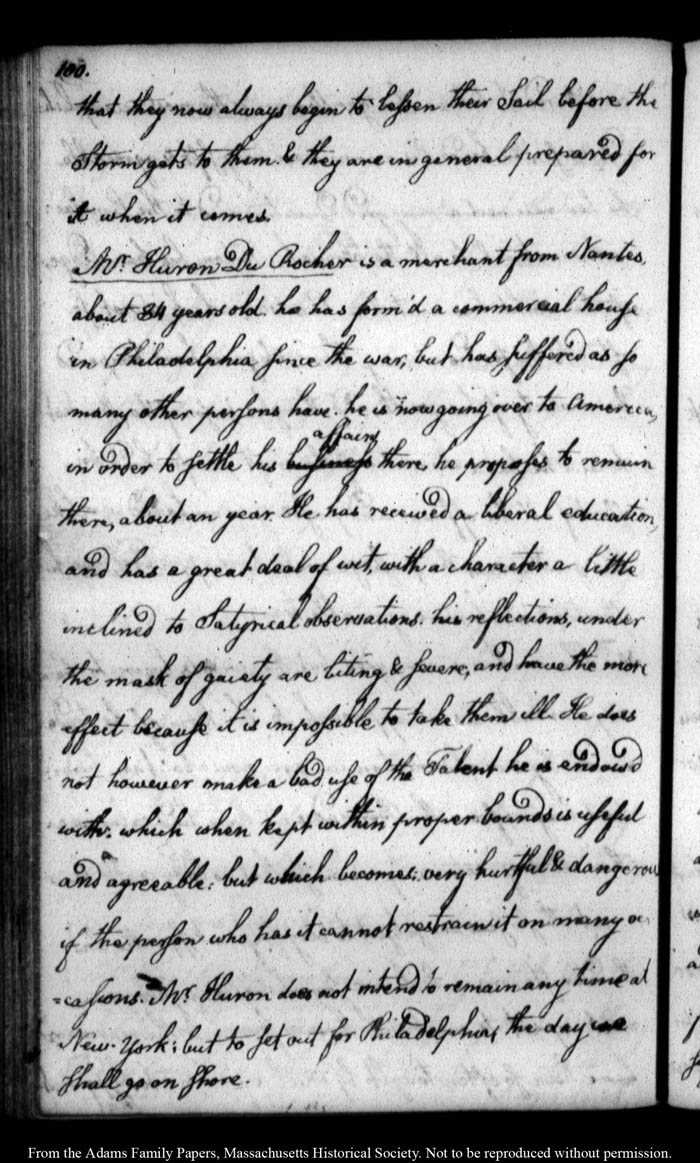 100.
that they now always begin to lessen their Sail before the
Storm gets to them. & they are in general prepared for
it when it comes.
Mr. Huron Du Rocher is a merchant from Nantes,
about 34 years old. he has form'd a commercial house
in Philadelphia since the war, but has suffered as so
many other persons have. he is now going over to America,
affairs
in order to settle his business there, he proposes to remain
there, about an year. He has received a liberal education,
and has a great deal of wit, with a character a little
inclined to Satyrical observations. his reflections, under
the mask of gaiety are biting & severe, and have the more
effect because it is impossible to take them ill. He does
not however make a bad use of the Talent he is endow'd
with. which when kept within proper bounds is useful
and agreeable: but which becomes; very hurtful & dangerous
if the person who has it cannot restrain it on many oc
=casions. Mr. Huron does not intend to remain any time at
New-York; but to set out for Philadelphia, the day we
shall go on shore.
From the Adams Family Papers, Massachusetts Historical Society. Not to be reproduced without permission.